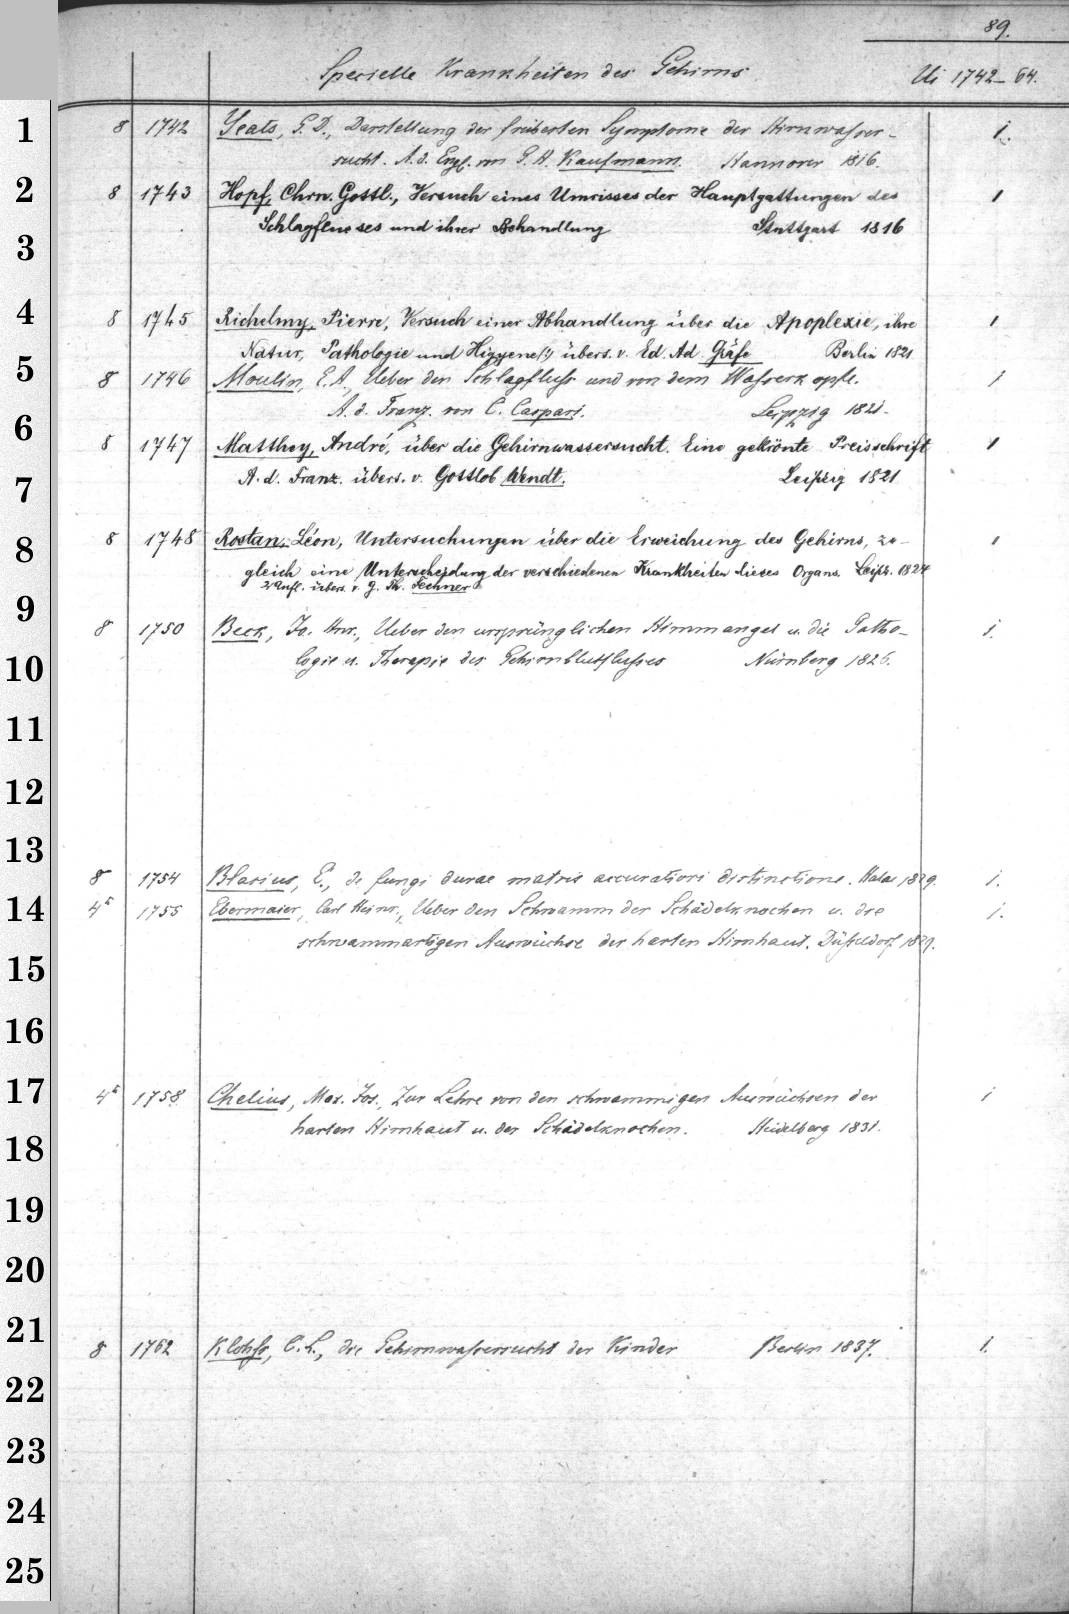 89.
Specielle Krankheiten des Gehirns Ui 1742-64.
1
8 1742 Yeats, G. D., Darstellung der frühesten Symptome der Hirnwasser-
sucht. A. d. Engl. von G. H. Kaufmann. Hannover 1816.
2
8 1743 Hopf, Chrn. Gottl., Versuch eines Umrisses der Hauptgattungen des 1
Schlagflusses und ihrer Behandlung Stuttgart 1816
3
4
8 1745 Richelmy, Pierre, Versuch einer Abhandlung über die Apoplexie, ihre 1
Natur, Pathologie und Higyene(!) übers. v. Ed. Ad. Gräfe Berlin 1821
5
8 1746 Moulin, E. A., Ueber den Schlagfluss und von dem Wasserkopfe. 1
A. d. Franz. von C. Caspari. Leipzig 1821.
6
8 1747 Matthey, André, über die Gehirnwassersucht. Eine gekrönte Preisschrift 1
7
A. d. Franz. übers. v. Gottlob Wendt. Leipzig 1821
8
8 1748 Rostan, Léon, Untersuchungen über die Erweichung des Gehirns, zu- 1
gleich eine Unterscheidung der verschiedenen Krankheiten dieses Organs. Leipz. 1824
2 Aufl. übers. v. G. Th. Fechner
9
8 1750 Beck, Jo. Hnr., Ueber den ursprünglichen Hirnmangel u. die Patho- 1.
10
logie u. Therapie des Gehirnblutflusses Nürnberg 1826.
11
12
13
8 1754 Blasius, E., de fungi durae matris accuratiori distinctione. Halae 1829. 1.
14
4° 1755 Ebermaier, Carl Heinr., Ueber den Schwamm der Schädelknochen u. die 1.
schwammartigen Auswüchse der harten Hirnhaut. Düsseldorf 1829.
15
16
17
4° 1758 Chelius, Max. Jos., Zur Lehre von den schwammigen Auswüchsen der 1
harten Hirnhaut u. der Schädelknochen. Heidelberg 1831.
18
19
20
21
8 1762 Klohss, C. L., die Gehirnwassersucht der Kinder Berlin 1837. 1.
22
23
24
25